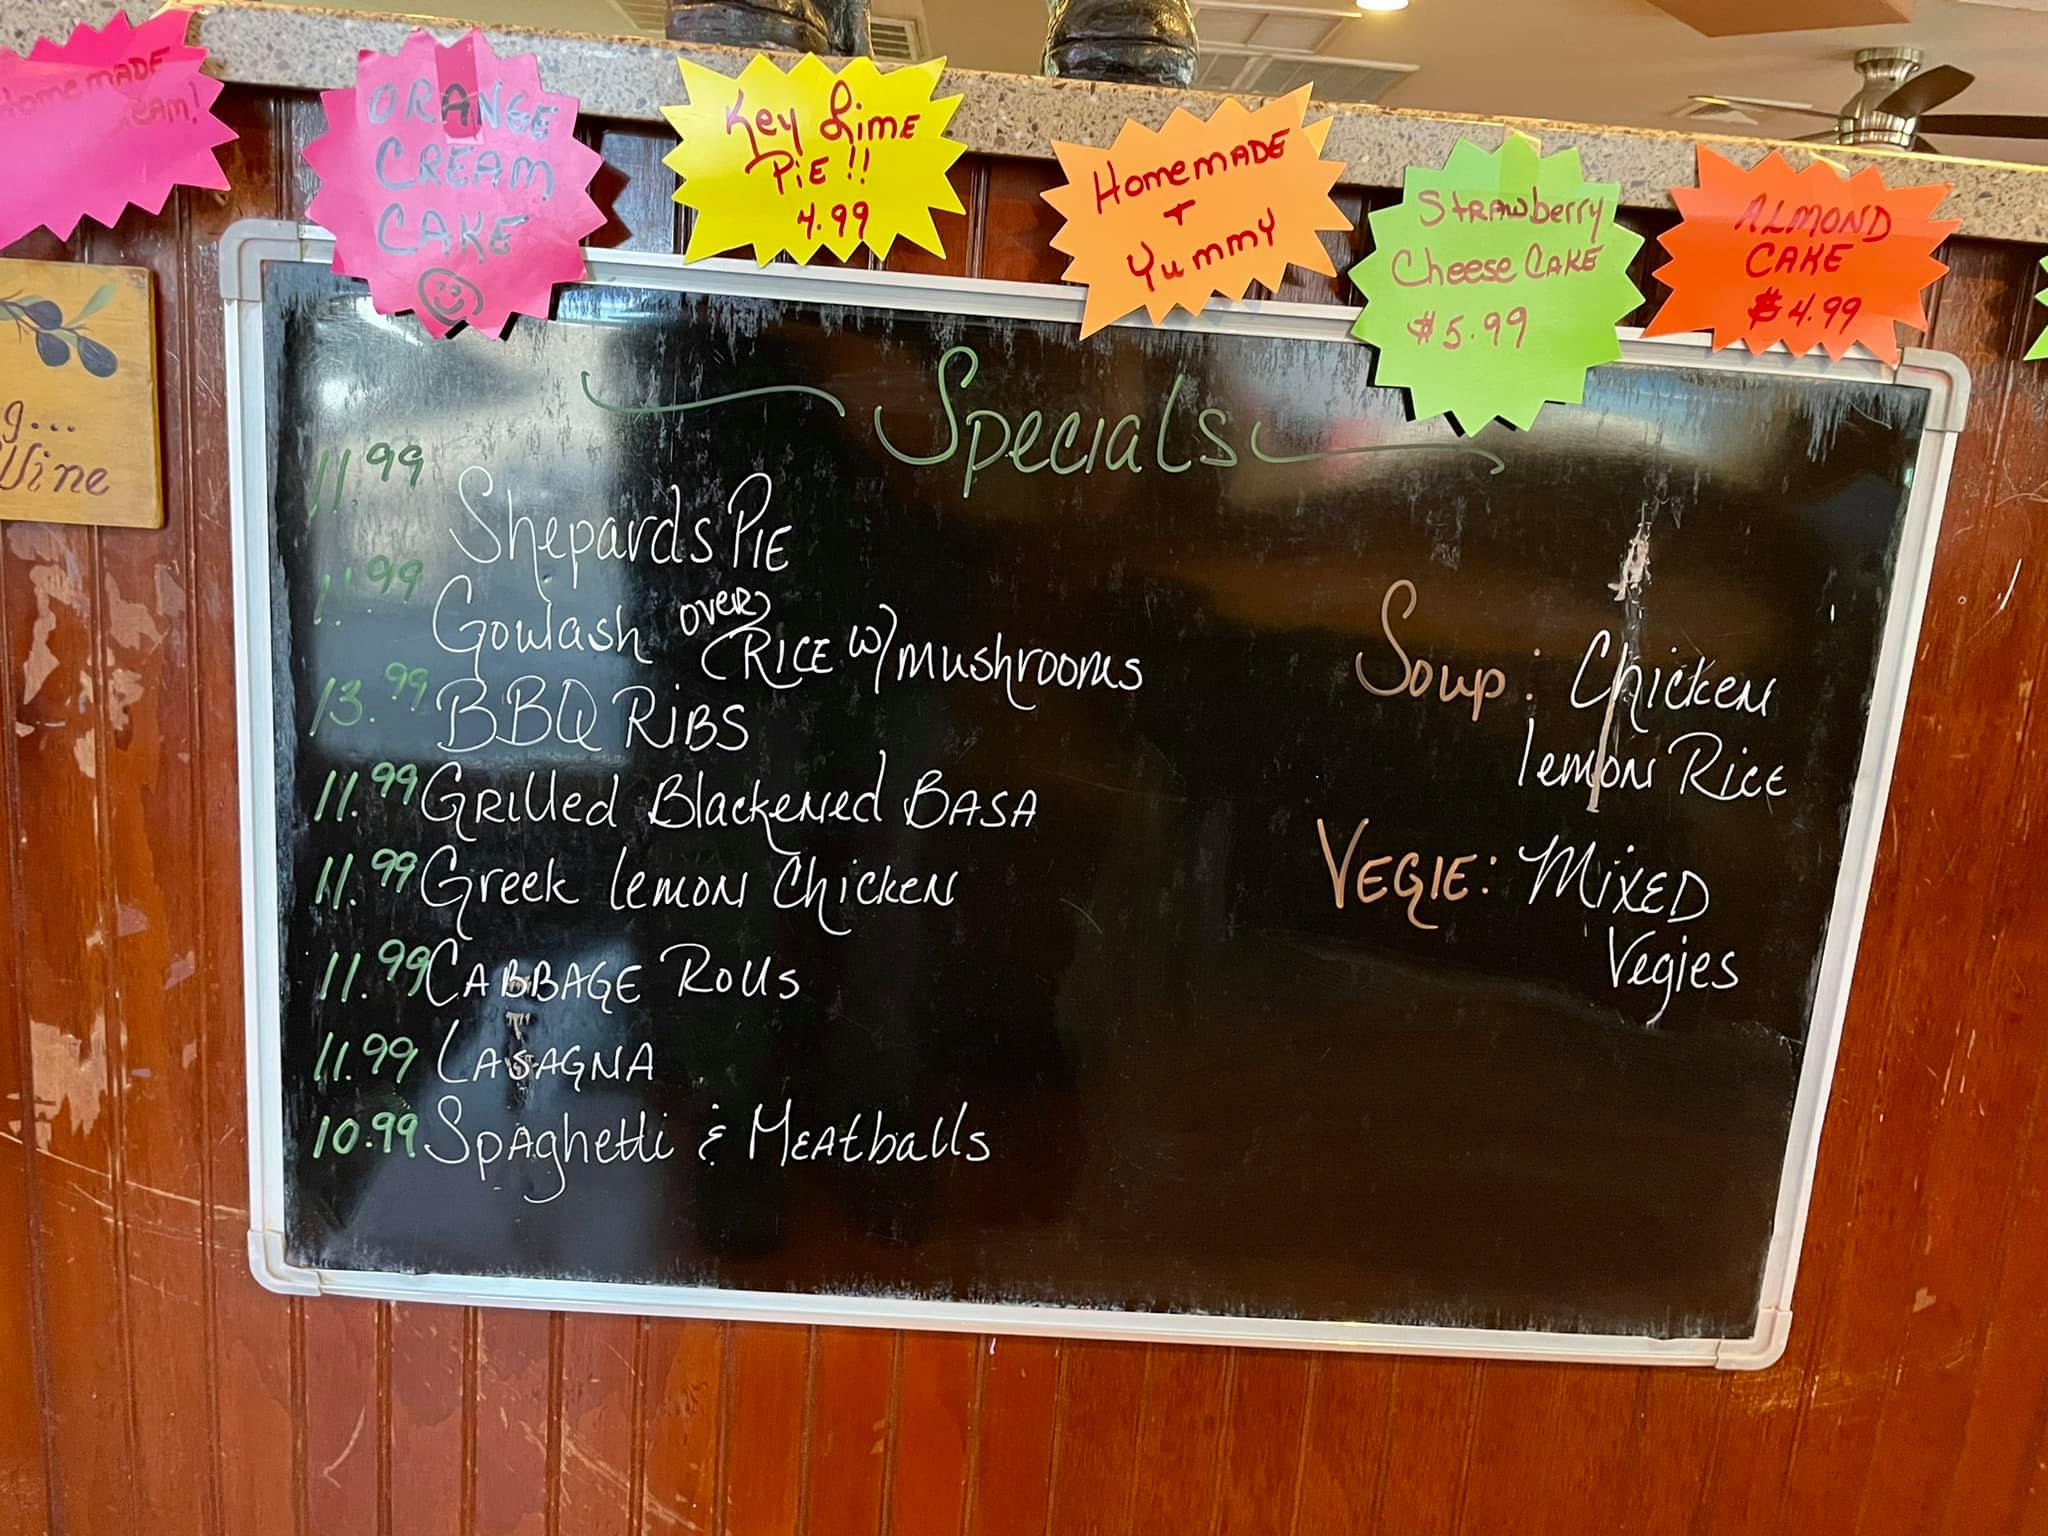 Homemade
ORANGE
CREAM
CAKE
Key Lime
Pie!!
4.99
Homemade
+
Yummy
Strawberry
Cheese Cake
$5.99
ALMOND
CAKE
$4.99
g...
Wine
Specials
11.99 Shepards Pie
11.99 Goulash over Rice w/ mushrooms
13.99 BBQ Ribs
11.99 Grilled Blackened Basa
11.99 Greek lemon Chicken
11.99 Cabbage Rolls
11.99 Lasagna
10.99 Spaghetti & Meatballs
Soup: Chicken
lemon Rice
Vegie: Mixed
Vegies